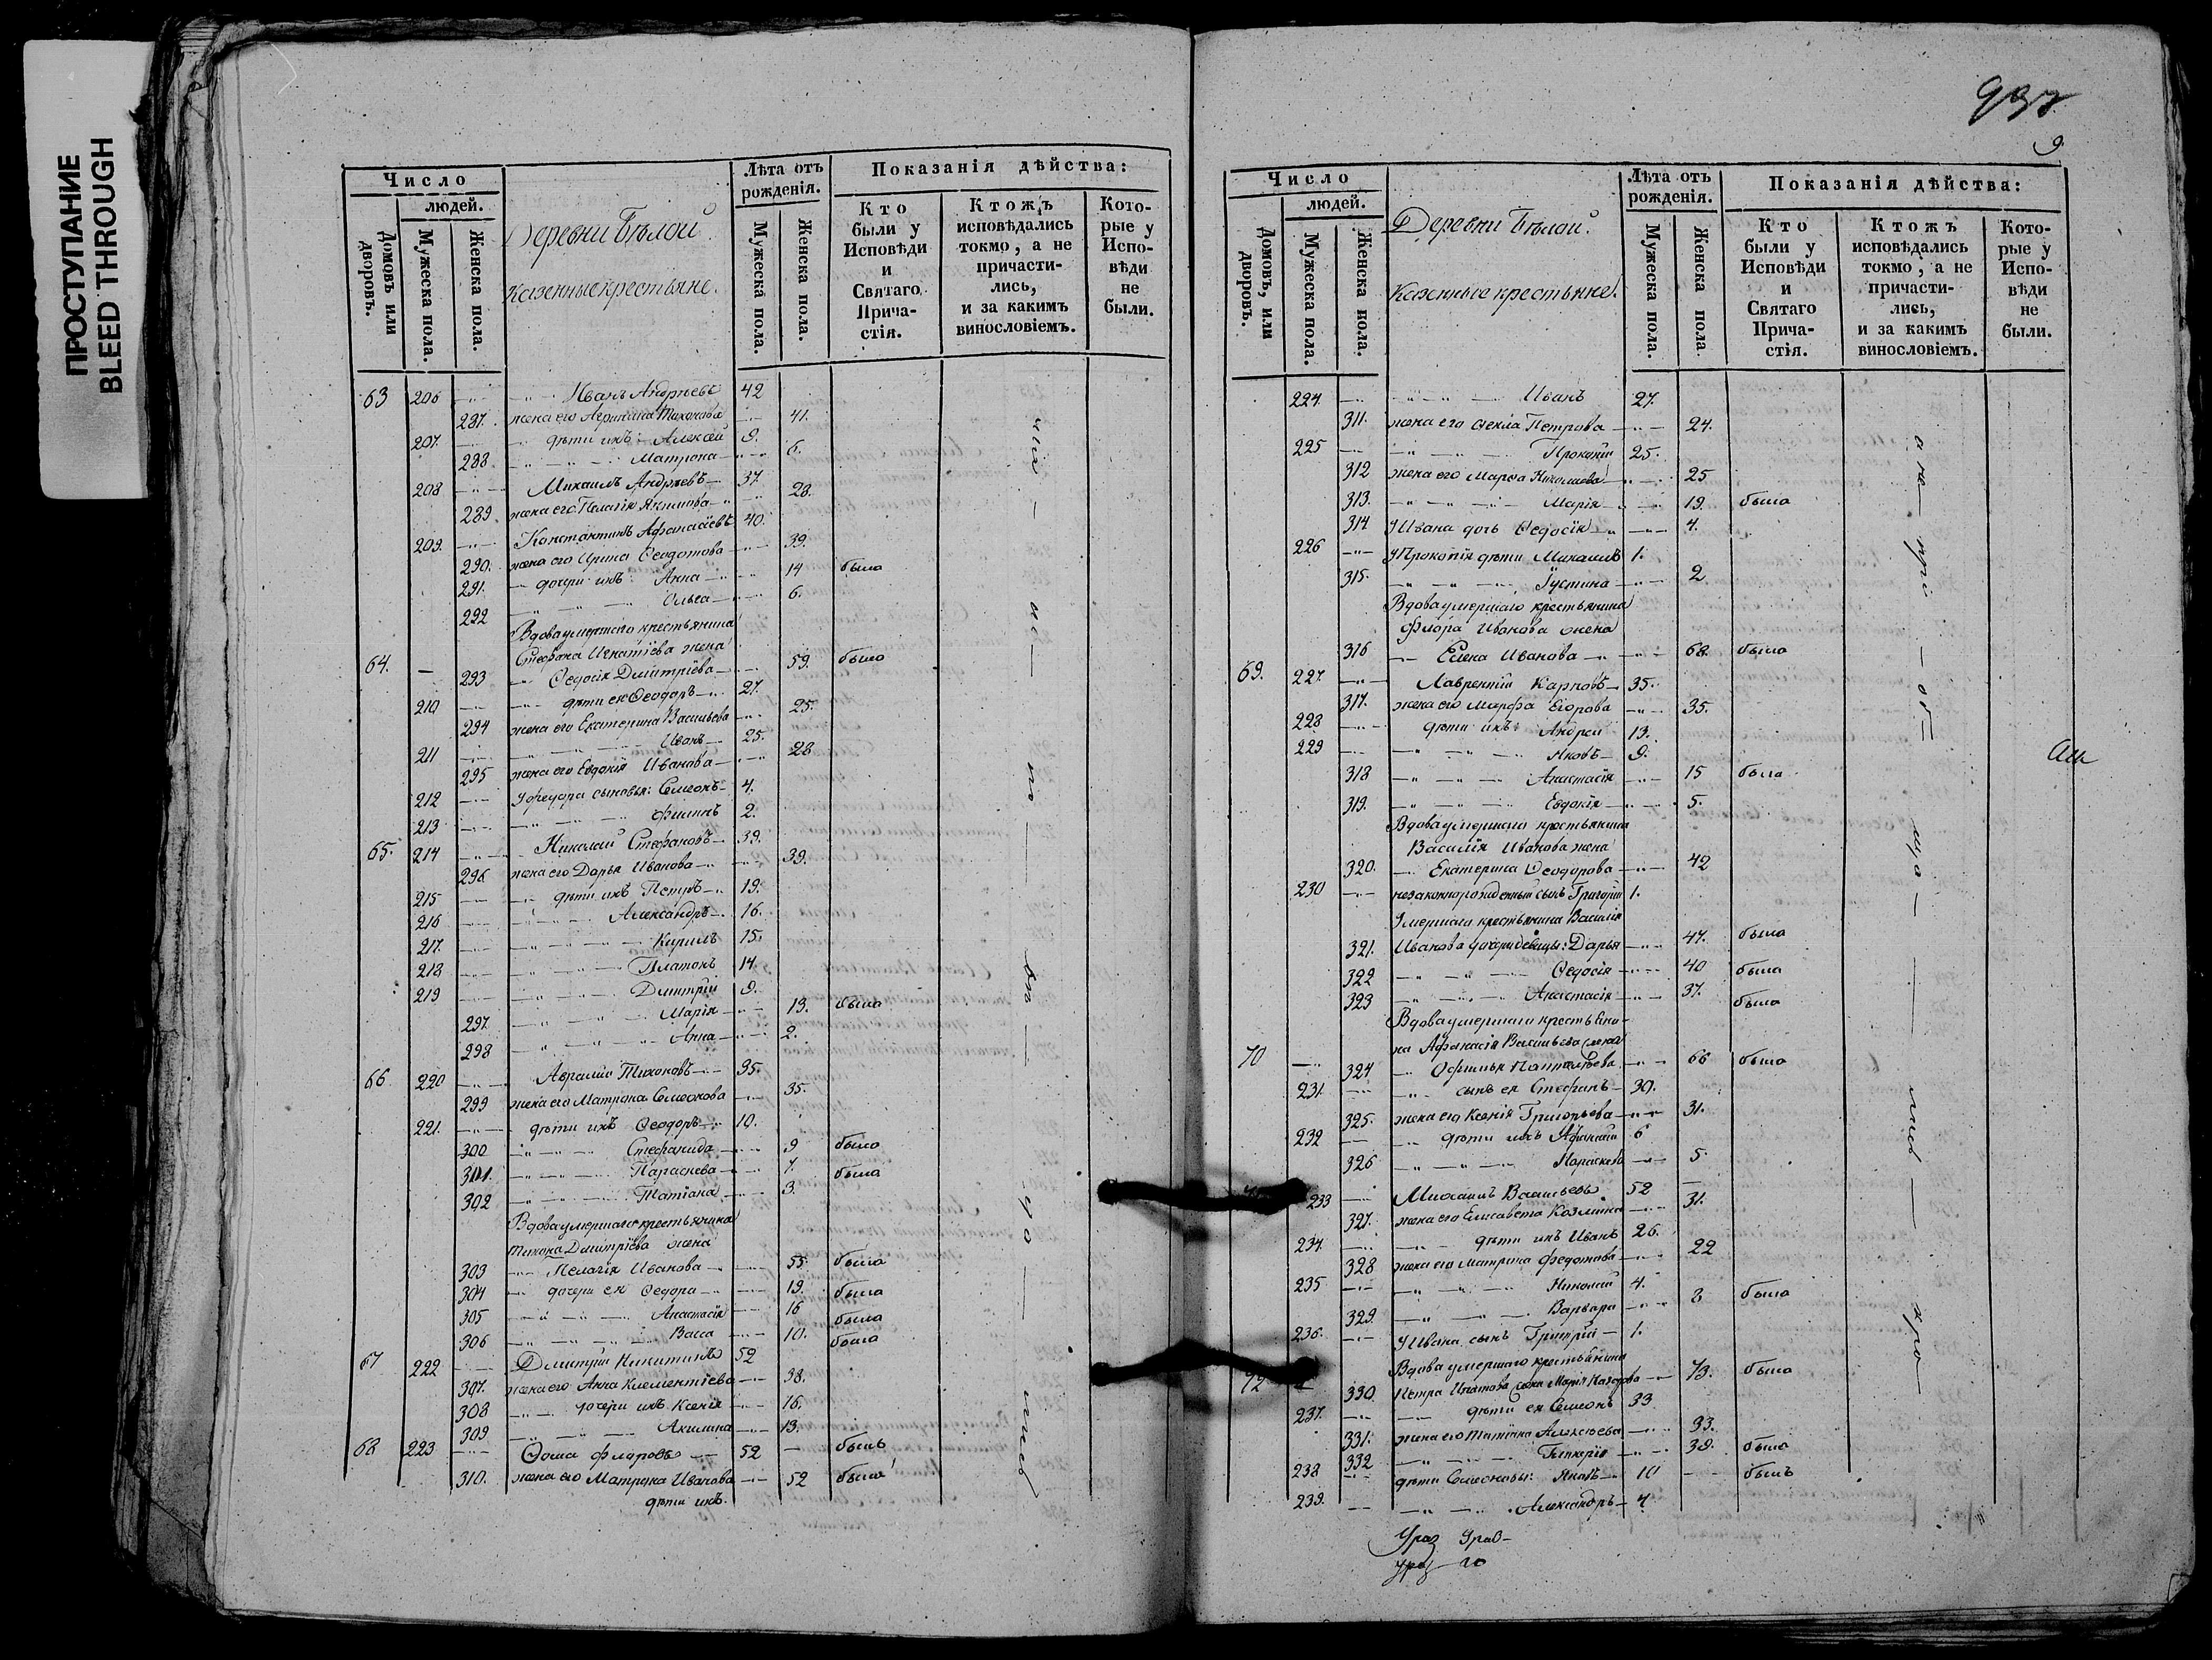 ПРОСТУПАНИЕ
BLEED THROUGH
Число
людей.
Домовъ или дворовъ.
Мужеска пола.
Женска пола.
Деревни Бѣлой.
Казенные крестьяне.
Лѣта отъ рожденія.
Мужеска пола.
Женска пола.
Показанія дѣйства:
Кто были у Исповѣди и Святаго Прича-стія.
Ктожъ исповѣдались токмо, а не причасти-лись, и за какимъ винословіемъ.
Кото-рые у Испо-вѣди не были.
63 206 Иванъ Андреевъ 42
287. жена его Агрипина Тихонова 41.
207. дѣти ихъ: Алексей 9.
288 Матрона 6.
208 Михаилъ Андреевъ 37.
289 жена его Пелагія Якимова 28.
209. Константинъ Афанасіевъ 40.
290. жена его Ирина Ѳеодотова 39.
291. дочери ихъ: Анна 14 была
292 Ольга 6.
Вдова умершаго крестьянина
Стефана Игнатіева жена
64. 293 Ѳедосія Димитріева 59. была
210 дѣти ея Ѳеодоръ 27.
294 жена его Екатерина Васильева 25.
211 Иванъ 25.
295 жена его Евдокія Иванова 28
212 У Ѳеодора сыновья: Симеонъ 4.
213 Филипъ 2.
65. 214 Николай Стефановъ 39.
296 жена его Дарья Иванова 39.
215 дѣти ихъ Петръ 19.
216 Александръ 16.
217. Кирилъ 15.
218 Платонъ 14.
219 Димитрій 9.
297. Марія 13. была
298 Анна 2.
66 220 Авраамъ Тихоновъ 35.
299 жена его Матрона Симеонова 35.
221. дѣти ихъ Ѳеодоръ 10.
300 Стефанида 9 была
301. Параскева 7. была
302 Татіана 3.
Вдова умершаго крестьянина
Тихона Димитріева жена
303 Пелагія Иванова 55. была
304 дочери ея Ѳедора 19. была
305 Анастасія 16 была
306 Васса 10. была
67 222 Димитрій Никитинъ 52
307. жена его Анна Климентіева 38.
308 дочери ихъ Ксенія 16.
309 Акилина 13.
68 223 Ѳома Флоровъ 52 былъ
310. жена его Матрона Иванова 52 была
дѣти ихъ.
9
Число
людей.
Домовъ, или дворовъ.
Мужеска пола.
Женска пола.
Деревни Бѣлой.
Казенные крестьяне.
Лѣта отъ рожденія.
Мужеска пола.
Женска пола
Показанія дѣйства:
Кто были у Исповѣди и Святаго Прича-стія.
Ктожъ исповѣдались токмо, а не причасти-лись, и за какимъ винословіемъ.
Кото-рые у Испо-вѣди не были.
224. Иванъ 27.
311. жена его Ѳекла Петрова 24.
225 Прокопій 25.
312 жена его Марѳа Николаева 25
313. Марія 19. была
314 У Ивана дочь Ѳедосія 4.
226 У Прокопія дѣти Михаилъ 1.
315. Іустина 2
Вдова умершаго крестьянина
Флора Иванова жена
316 Елена Иванова 68. была
69. 227. Лаврентій Карповъ 35.
317. жена его Марфа Егорова 35.
228 дѣти ихъ: Андрей 13.
229 Яковъ 9.
318 Анастасія 15 была
319. Евдокія 5.
Вдова умершаго крестьянина
Василія Иванова жена
320. Екатерина Ѳеодорова 42
230 незаконнорожденный сынъ Григорій 1.
Умершаго крестьянина Василія
321. Иванова дочери девицы: Дарья 47. была
322 Ѳедосія 40 была
323 Анастасія 37. была
Вдова умершаго крестьяни-
на Афанасія Васильева жена
70 324 66 была
231. сынъ ея Стефанъ 30.
325. жена его Ксенія Григорьева 31.
232 дѣти ихъ Афанасій 6
326 Параскева 5.
233 Михаилъ Васильевъ 52
327. жена его Елисавета Козмина 31.
234. дѣти ихъ Иванъ 26.
328 жена его Матрона Федотова 22
235 Николай 4.
329. Варвара 8 была
236. У Ивана сынъ Григорій 1.
Вдова умершаго крестьянина
72 330 Петра Игнатова жена Марія 73. была
237. дѣти ея Симеонъ 33
331. жена его Татіана Алексеева 33.
332 38. была
238 дѣти Симеоновы: Яковъ 10 былъ
239. Александръ 4